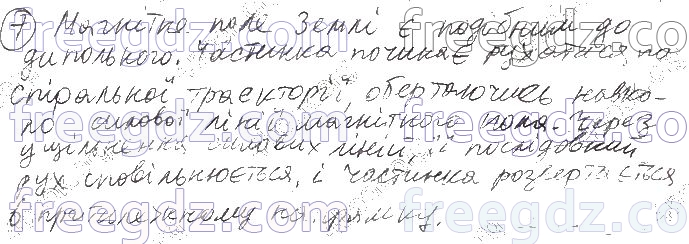 7 Магнітне поле Землі є подобним до
дипольного. Частинка починає рухатися по
спіральної траєкторії, обертаючись навко-
ло силової лінії магнітного поля. Через
ущільнення силових ліній, її послідовний
рух сповільнюється, і частинка розвертається
в протилежному напрямку.